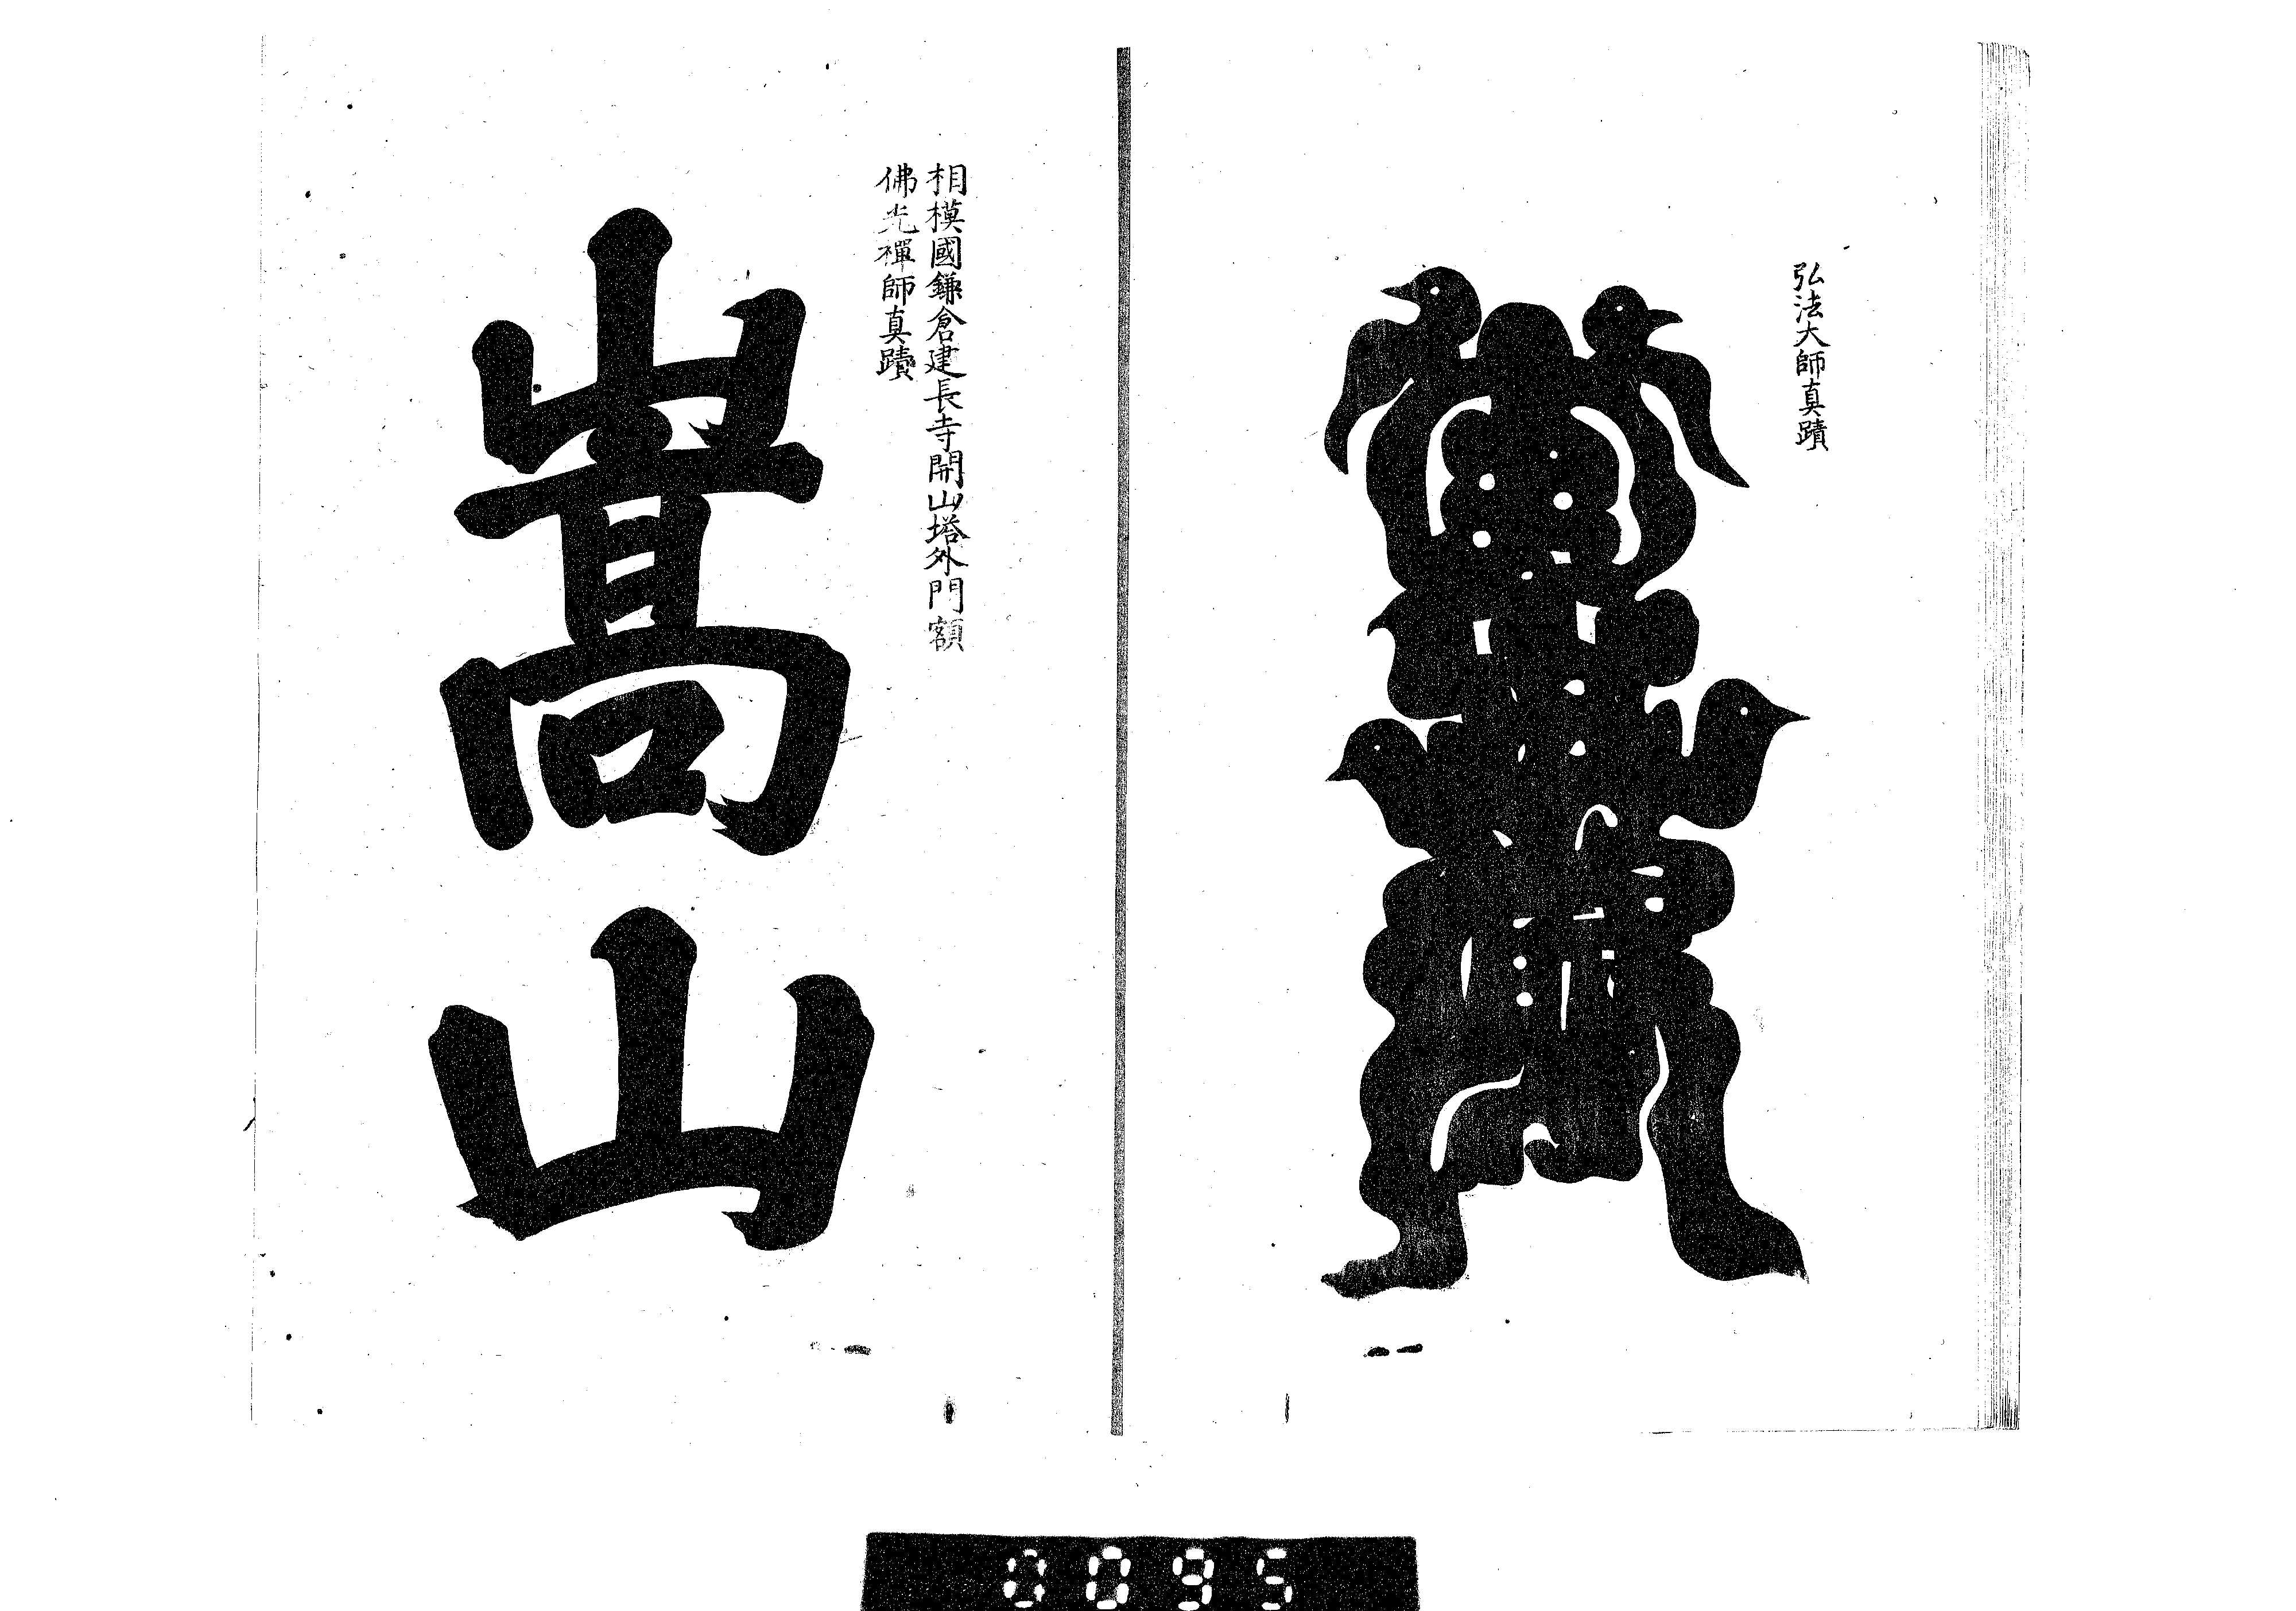 弘法大師真蹟
相模國鎌倉建長寺開山塔外門額
佛光禪師真蹟
嵩山
0095